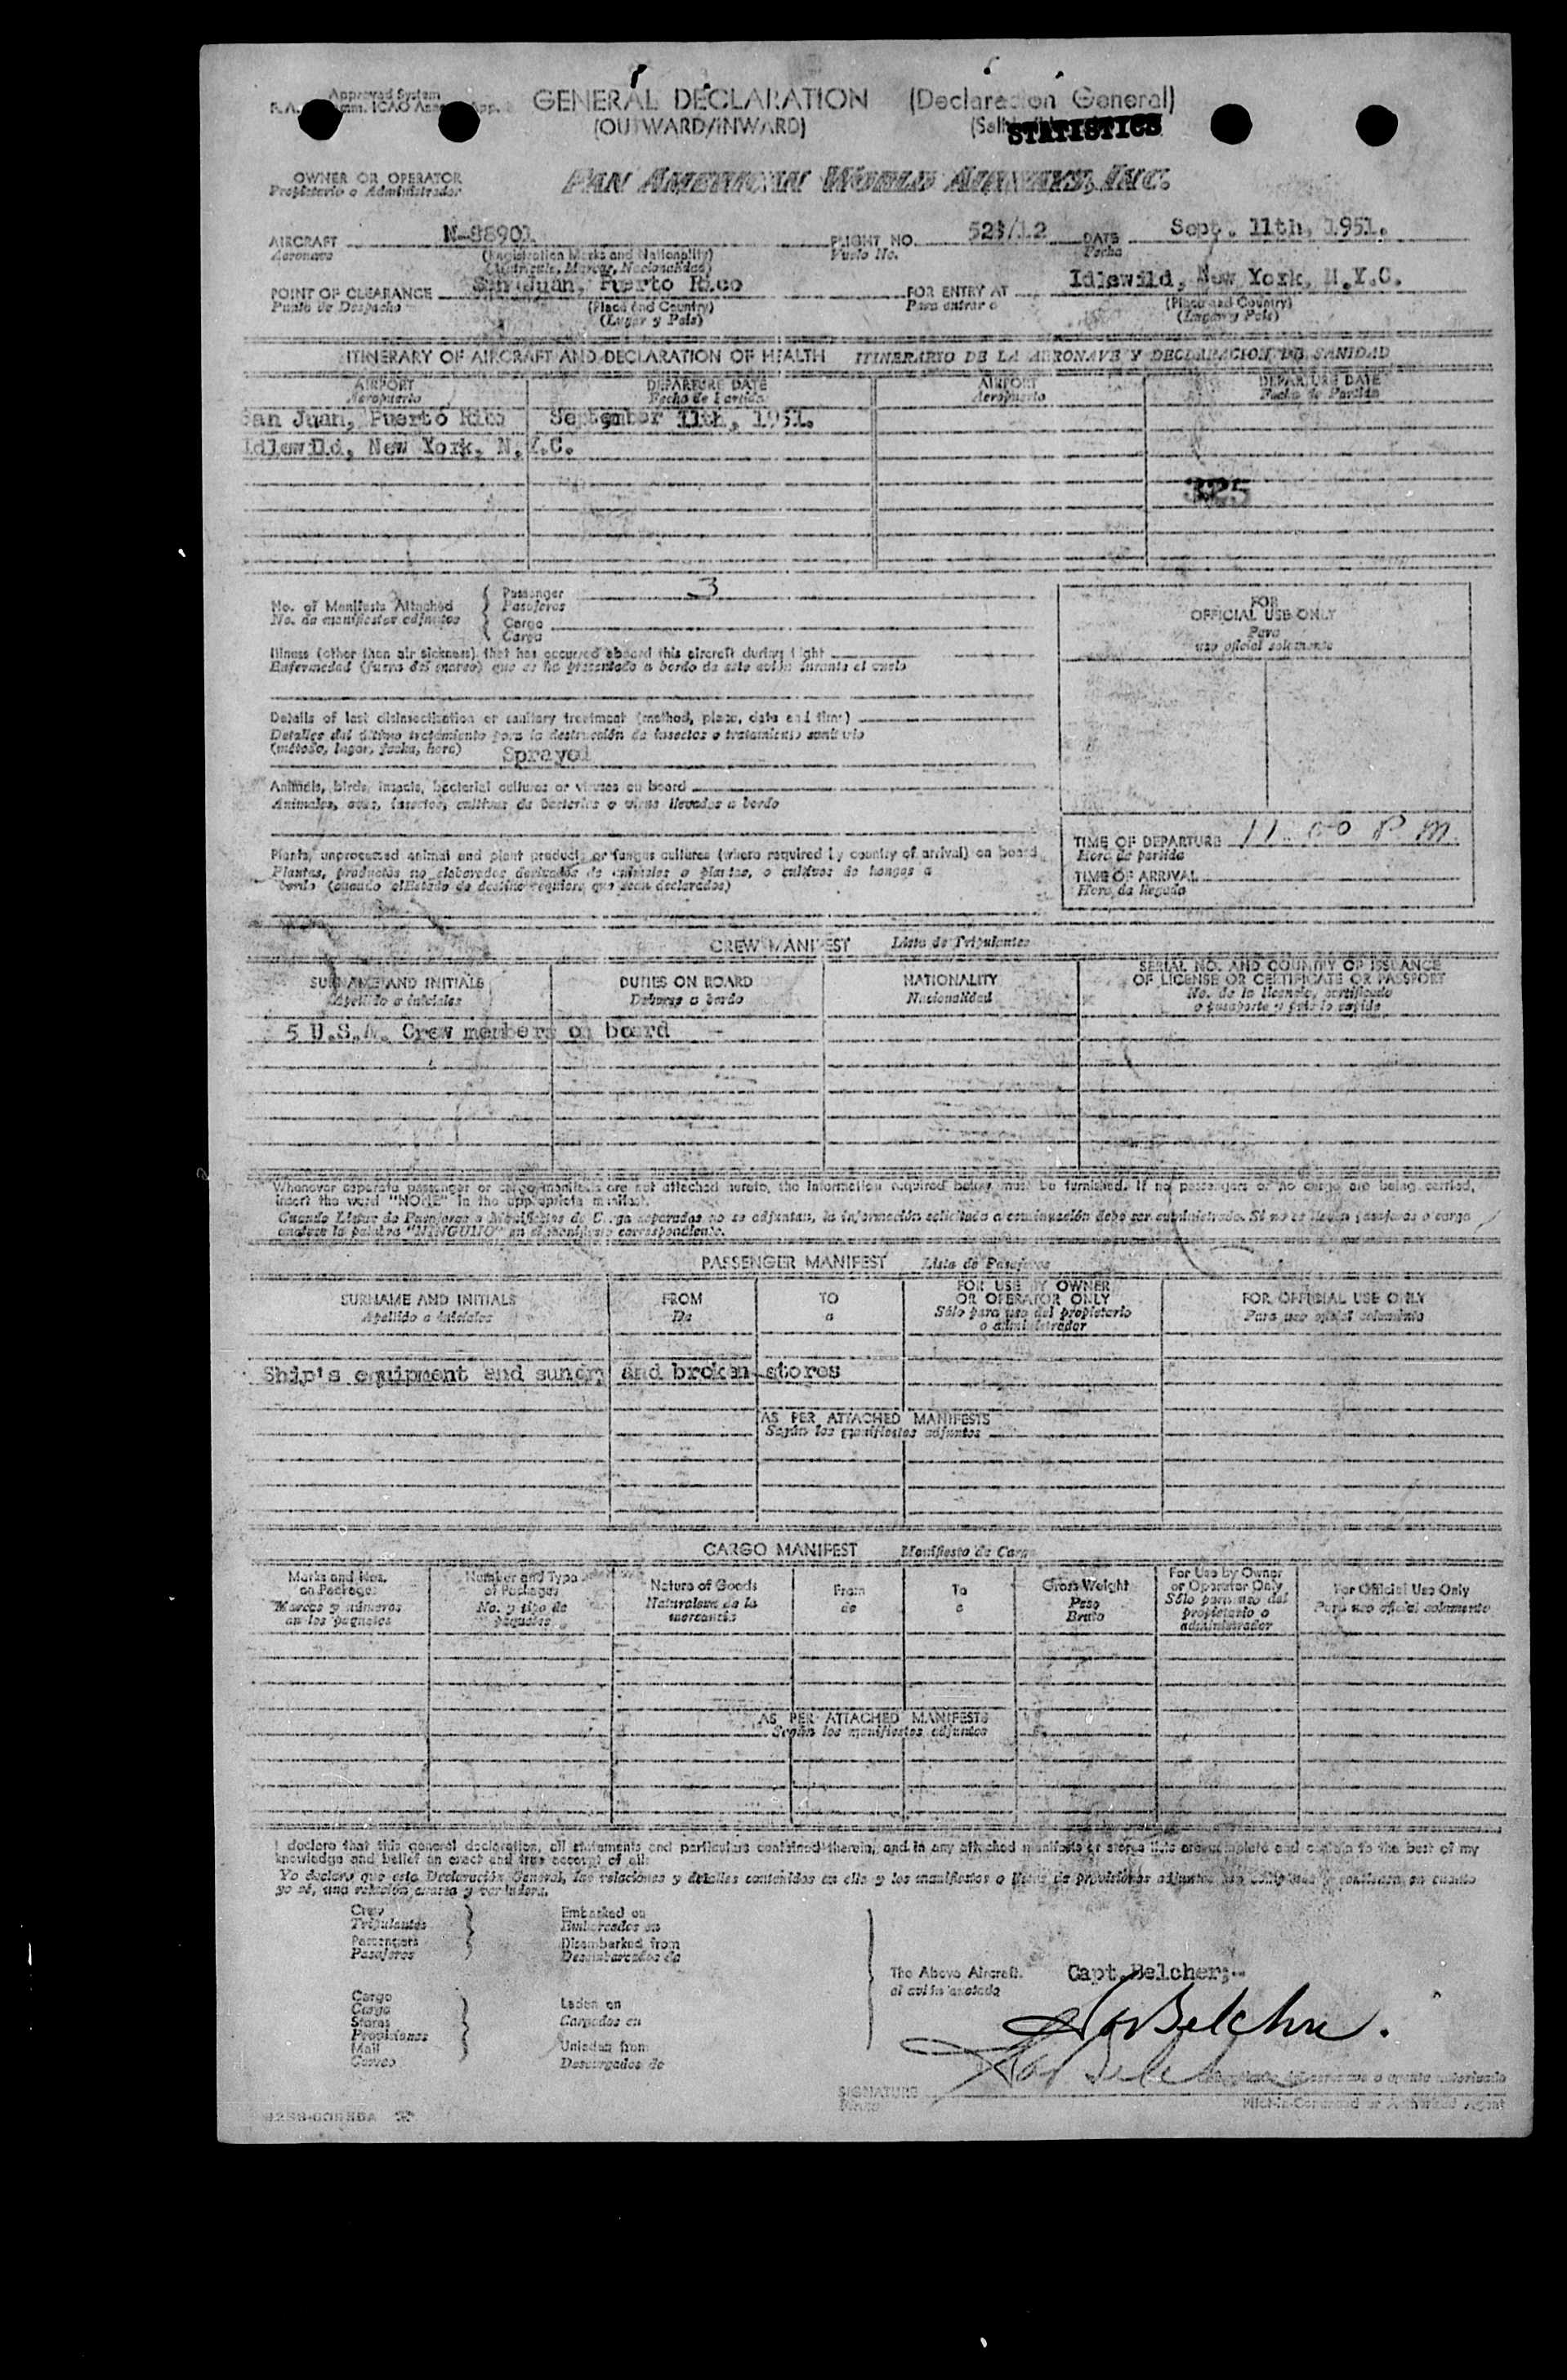 Approved System
GENERAL DECLARATION (Declaracion General)
(OUTWARD/INWARD)
STATISTICS
OWNER OR OPERATOR
Propietario o Administrador
PAN AMERICAN WORLD AIRWAYS, INC.
AIRCRAFT N-88901 FLIGHT NO. DATE Sept. 11th, 1951.
Aeronave (Registration Marks and Nationality) Vuelo No. Fecha
(Matricula, Marcas, Nacionalidad)
POINT OF CLEARANCE San Juan, Puerto Rico FOR ENTRY AT Idlewild, New York, N.Y.C.
Punto de Despacho (Place and Country) Para entrar a (Place and Country)
(Lugar y Pais) (Lugar y Pais)
ITINERARY OF AIRCRAFT AND DECLARATION OF HEALTH ITINERARIO DE LA AERONAVE Y DECLARACION DE SANIDAD
AIRPORT DEPARTURE DATE AIRPORT DEPARTURE DATE
Aeropuerto Fecha de Partida Aeropuerto Fecha de Partida
San Juan, Puerto Rico September 11th, 1951.
Idlewild, New York, N.Y.C.
No. of Manifests Attached Passenger 3
No. de manifiestos adjuntos Pasajeros
Cargo
Carga
FOR
OFFICIAL USE ONLY
Para
uso oficial solamente
Illness (other than air sickness) that has occurred aboard this aircraft during flight
Enfermedad (fuera del mareo) que se ha presentado a bordo de este avión durante el vuelo
Details of last disinsectisation or sanitary treatment (method, place, date and time)
Detalles del último tratamiento para la destrucción de insectos o tratamiento sanitario
(método, lugar, fecha, hora) Sprayed
Animals, birds, insects, bacterial cultures or viruses on board
Animales, aves, insectos, cultivos de bacterias o virus llevados a bordo
TIME OF DEPARTURE 11:00 P M
Hora de partida
TIME OF ARRIVAL
Hora de llegada
Plants, unprocessed animal and plant products or fungus cultures (where required by country of arrival) on board
Plantas, productos no elaborados derivados de animales o plantas, o cultivos de hongos a
bordo (cuando el Estado de destino requiera que sean declarados)
CREW MANIFEST Lista de Tripulantes
SURNAME AND INITIALS DUTIES ON BOARD NATIONALITY SERIAL NO. AND COUNTRY OF ISSUANCE
Apellido e iniciales Deberes a bordo Nacionalidad OF LICENSE OR CERTIFICATE OR PASSPORT
No. de la licencia, certificado
5 U.S.A. Crew members on board
Whenever separate passenger or cargo manifests are not attached hereto, the information required below must be furnished. If no passengers or no cargo are being carried,
insert the word "NONE" in the appropriate manifest.
Cuando Listas de Pasajeros o Manifiestos de Carga separados no se adjuntan, la información solicitada a continuación debe ser suministrada. Si no se llevan pasajeros o carga
anótese la palabra "NINGUNO" en el manifiesto correspondiente.
PASSENGER MANIFEST Lista de Pasajeros
SURNAME AND INITIALS FROM TO FOR USE BY OWNER OR OPERATOR ONLY FOR OFFICIAL USE ONLY
Apellido e iniciales De a Sólo para uso del propietario o administrador Para uso oficial solamente
Ship's equipment and sundry and broken stores
AS PER ATTACHED MANIFESTS
Según los manifiestos adjuntos
CARGO MANIFEST Manifiesto de Carga
Marks and Nos. on Packages Number and Type of Packages Nature of Goods From To Gross Weight For Use by Owner or Operator Only For Official Use Only
Marcas y números en los paquetes No. y tipo de paquetes Naturaleza de la mercancía de a Peso Bruto Sólo para uso del propietario o administrador Para uso oficial solamente
AS PER ATTACHED MANIFESTS
Según los manifiestos adjuntos
I declare that this general declaration, all statements and particulars contained therein, and in any attached manifests or stores lists are complete and contain to the best of my
knowledge and belief an exact and true account of all:
Yo declaro que esta Declaración General, las relaciones y detalles contenidos en ella y los manifiestos o listas de provisiones adjuntos son completos y contienen en cuanto
yo sé, una relación exacta y verdadera.
Crew Embarked on
Tripulantes Embarcados en
Passengers Disembarked from
Pasajeros Desembarcados de
The Above Aircraft. Capt. Belcher;--
Cargo Laden on
Carga Cargados en
Stores
Provisiones
Mail Unladen from
Correo Descargados de
Belcher.
SIGNATURE
Firma
Pilot-in-Command or Authorized Agent